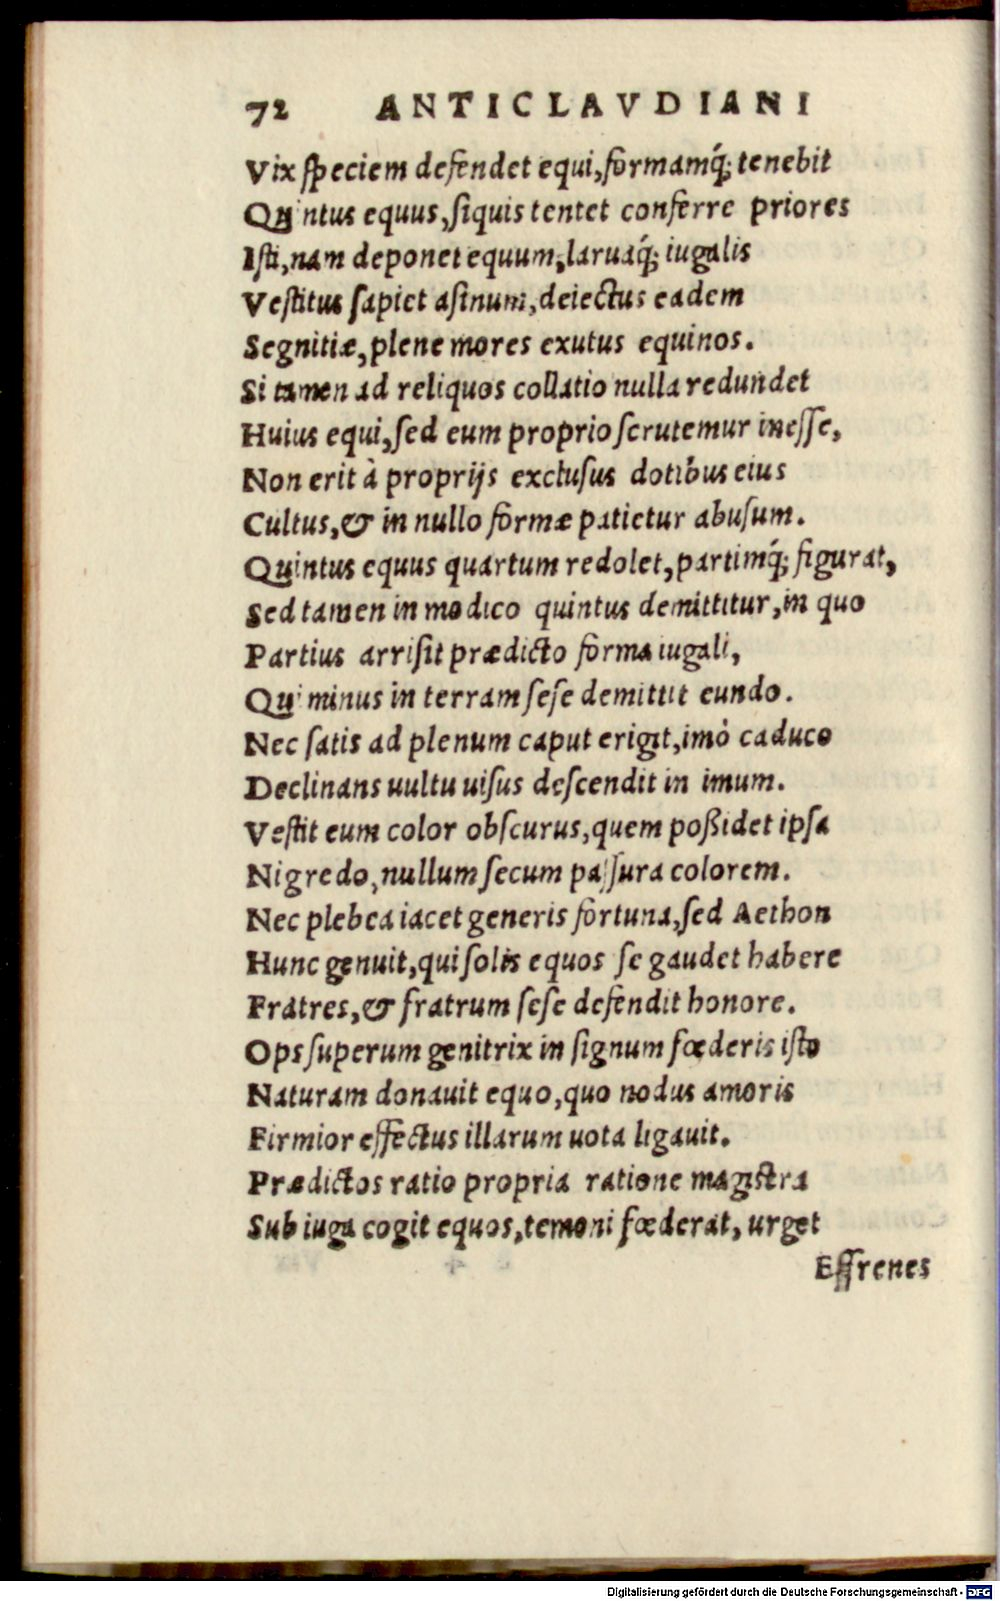 72 ANTICLAVDIANI
Vix ſpeciem defendet equi, formamq́; tenebit
Quintus equus, ſiquis tentet conferre priores
Iſti, nam deponet equum, laruaq́; iugalis
Veſtitus ſapiet aſinum, deiectus eadem
Segnitiæ, plene mores exutus equinos.
Si tamen ad reliquos collatio nulla redundet
Huius equi, ſed eum proprio ſcrutemur ineſſe,
Non erit à proprijs excluſus dotibus eius
Cultus, & in nullo formæ patietur abuſum.
Quintus equus quartum redolet, partimq́; figurat,
Sed tamen in modico quintus demittitur, in quo
Partius arriſit prædicto forma iugali,
Qui minus in terram ſeſe demittit eundo.
Nec ſatis ad plenum caput erigit, imò caduco
Declinans uultu uiſus deſcendit in imum.
Veſtit eum color obſcurus, quem poßidet ipſa
Nigredo, nullum ſecum paſſura colorem.
Nec plebea iacet generis fortuna, ſed Aethon
Hunc genuit, qui ſolis equos ſe gaudet habere
Fratres, & fratrum ſeſe defendit honore.
Ops ſuperum genitrix in ſignum fœderis iſto
Naturam donauit equo, quo nodus amoris
Firmior effectus illarum uota ligauit.
Prædictos ratio propria ratione magiſtra
Sub iuga cogit equos, temoni fœderat, urget
Effrenes
Digitalisierung gefördert durch die Deutsche Forschungsgemeinschaft - DFG